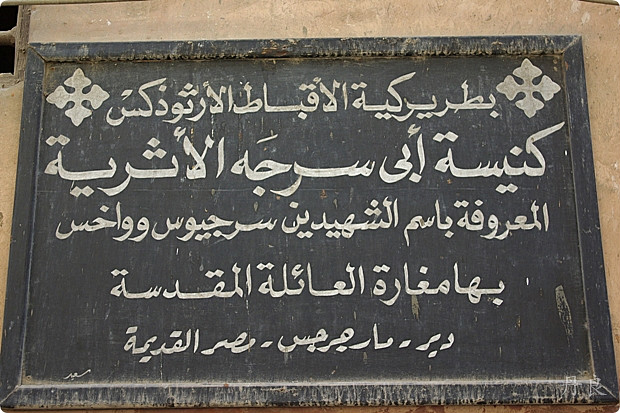 بطريركية الأقباط الأرثوذكس
كنيسة أبى سرجَه الأثرية
المعروفة باسم الشهيدين سرجيوس وواخس
بها مغارة العائلة المقدسة
دير - مارجرجس - مصر القديمة
سعيد